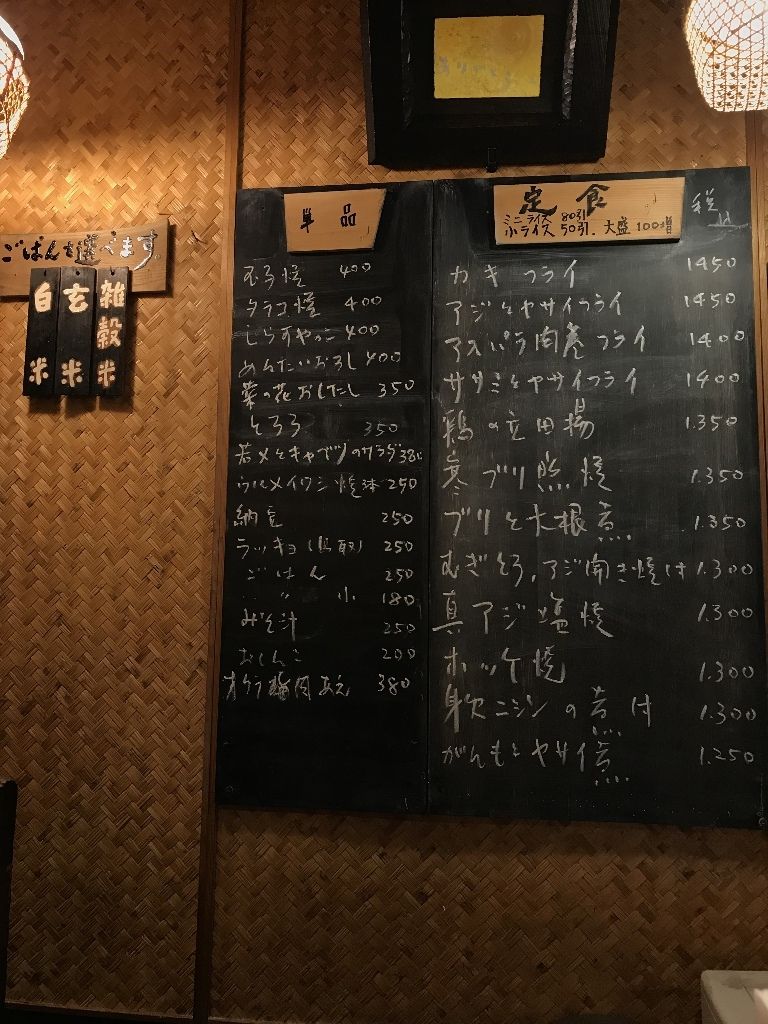 ごはんを選べます。
白米
玄米
雑穀米
単品
むろ焼 400
タラコ焼 400
しらすやっこ 400
めんたいおろし 400
菜の花おしたし 350
とろろ 350
若メとキャベツのサラダ 380
ウルメイワシ焼 2本 250
納豆 250
ラッキョ(鳥取) 250
ごはん 250
〃 小 180
みそ汁 250
おしんこ 200
オクラ梅肉あえ 380
定食
ミニライス 80引
小ライス 50引. 大盛100増
税込
カキフライ 1450
アジとヤサイフライ 1450
アスパラ肉巻フライ 1400
ササミとヤサイフライ 1400
鶏の立田揚 1.350
寒ブリ照焼 1.350
ブリと大根煮 1.350
むぎとろ,アジ開き焼付 1.300
真アジ塩焼 1.300
ホッケ焼 1.300
身欠ニシンの煮付 1.300
がんもとヤサイ煮 1.250